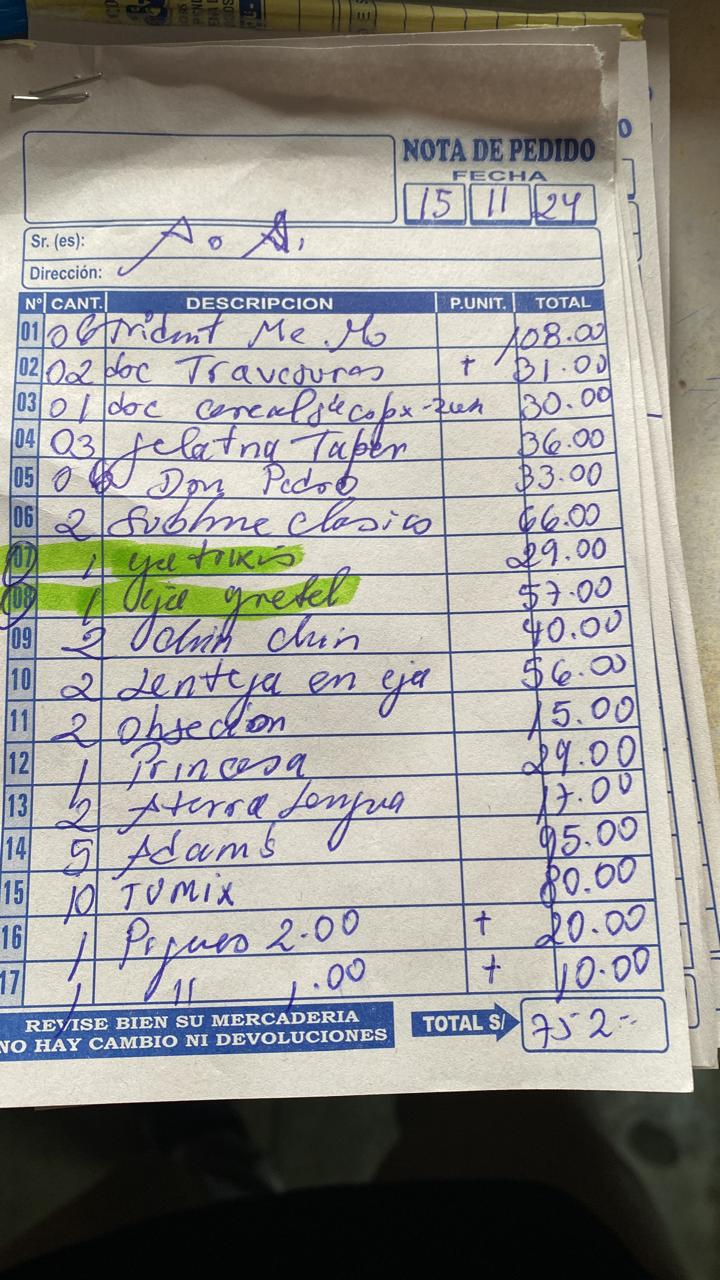 NOTA DE PEDIDO
FECHA
15 11 24
Sr. (es): A. A.
Dirección:
Nº CANT. DESCRIPCION P.UNIT. TOTAL
01 06 Trident Me. Mo 108.00
02 02 doc Travesuras + 31.00
03 01 doc cereal 30.00
04 03 jelatna Taper 36.00
05 06 Don Pedro 33.00
06 2 Sublime clasico 66.00
07 1 29.00
08 1 cja gretel 57.00
09 2 chin chin 40.00
10 2 Lenteja en cja 56.00
11 2 Obsecion 15.00
12 1 Princesa 29.00
13 2 Aterra Lengua 17.00
14 5 Adams 95.00
15 10 TUMIX 80.00
16 1 2.00 + 20.00
17 1 " 1.00 + 10.00
REVISE BIEN SU MERCADERIA
NO HAY CAMBIO NI DEVOLUCIONES
TOTAL S/ 752--